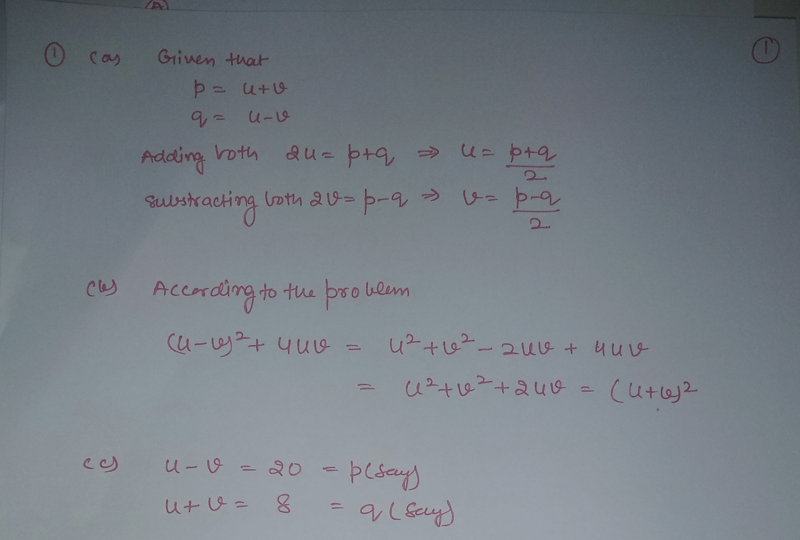 (A)
① (a) Given that ①
p = u+v
q = u-v
Adding both 2u = p+q ⇒ u = p+q/2
Substracting both 2v = p-q ⇒ v = p-q/2
(b) According to the problem
(u-v)² + 4uv = u²+v²-2uv+4uv
= u²+v²+2uv = (u+v)²
(c) u-v = 20 = p (say)
u+v = 8 = q (say)